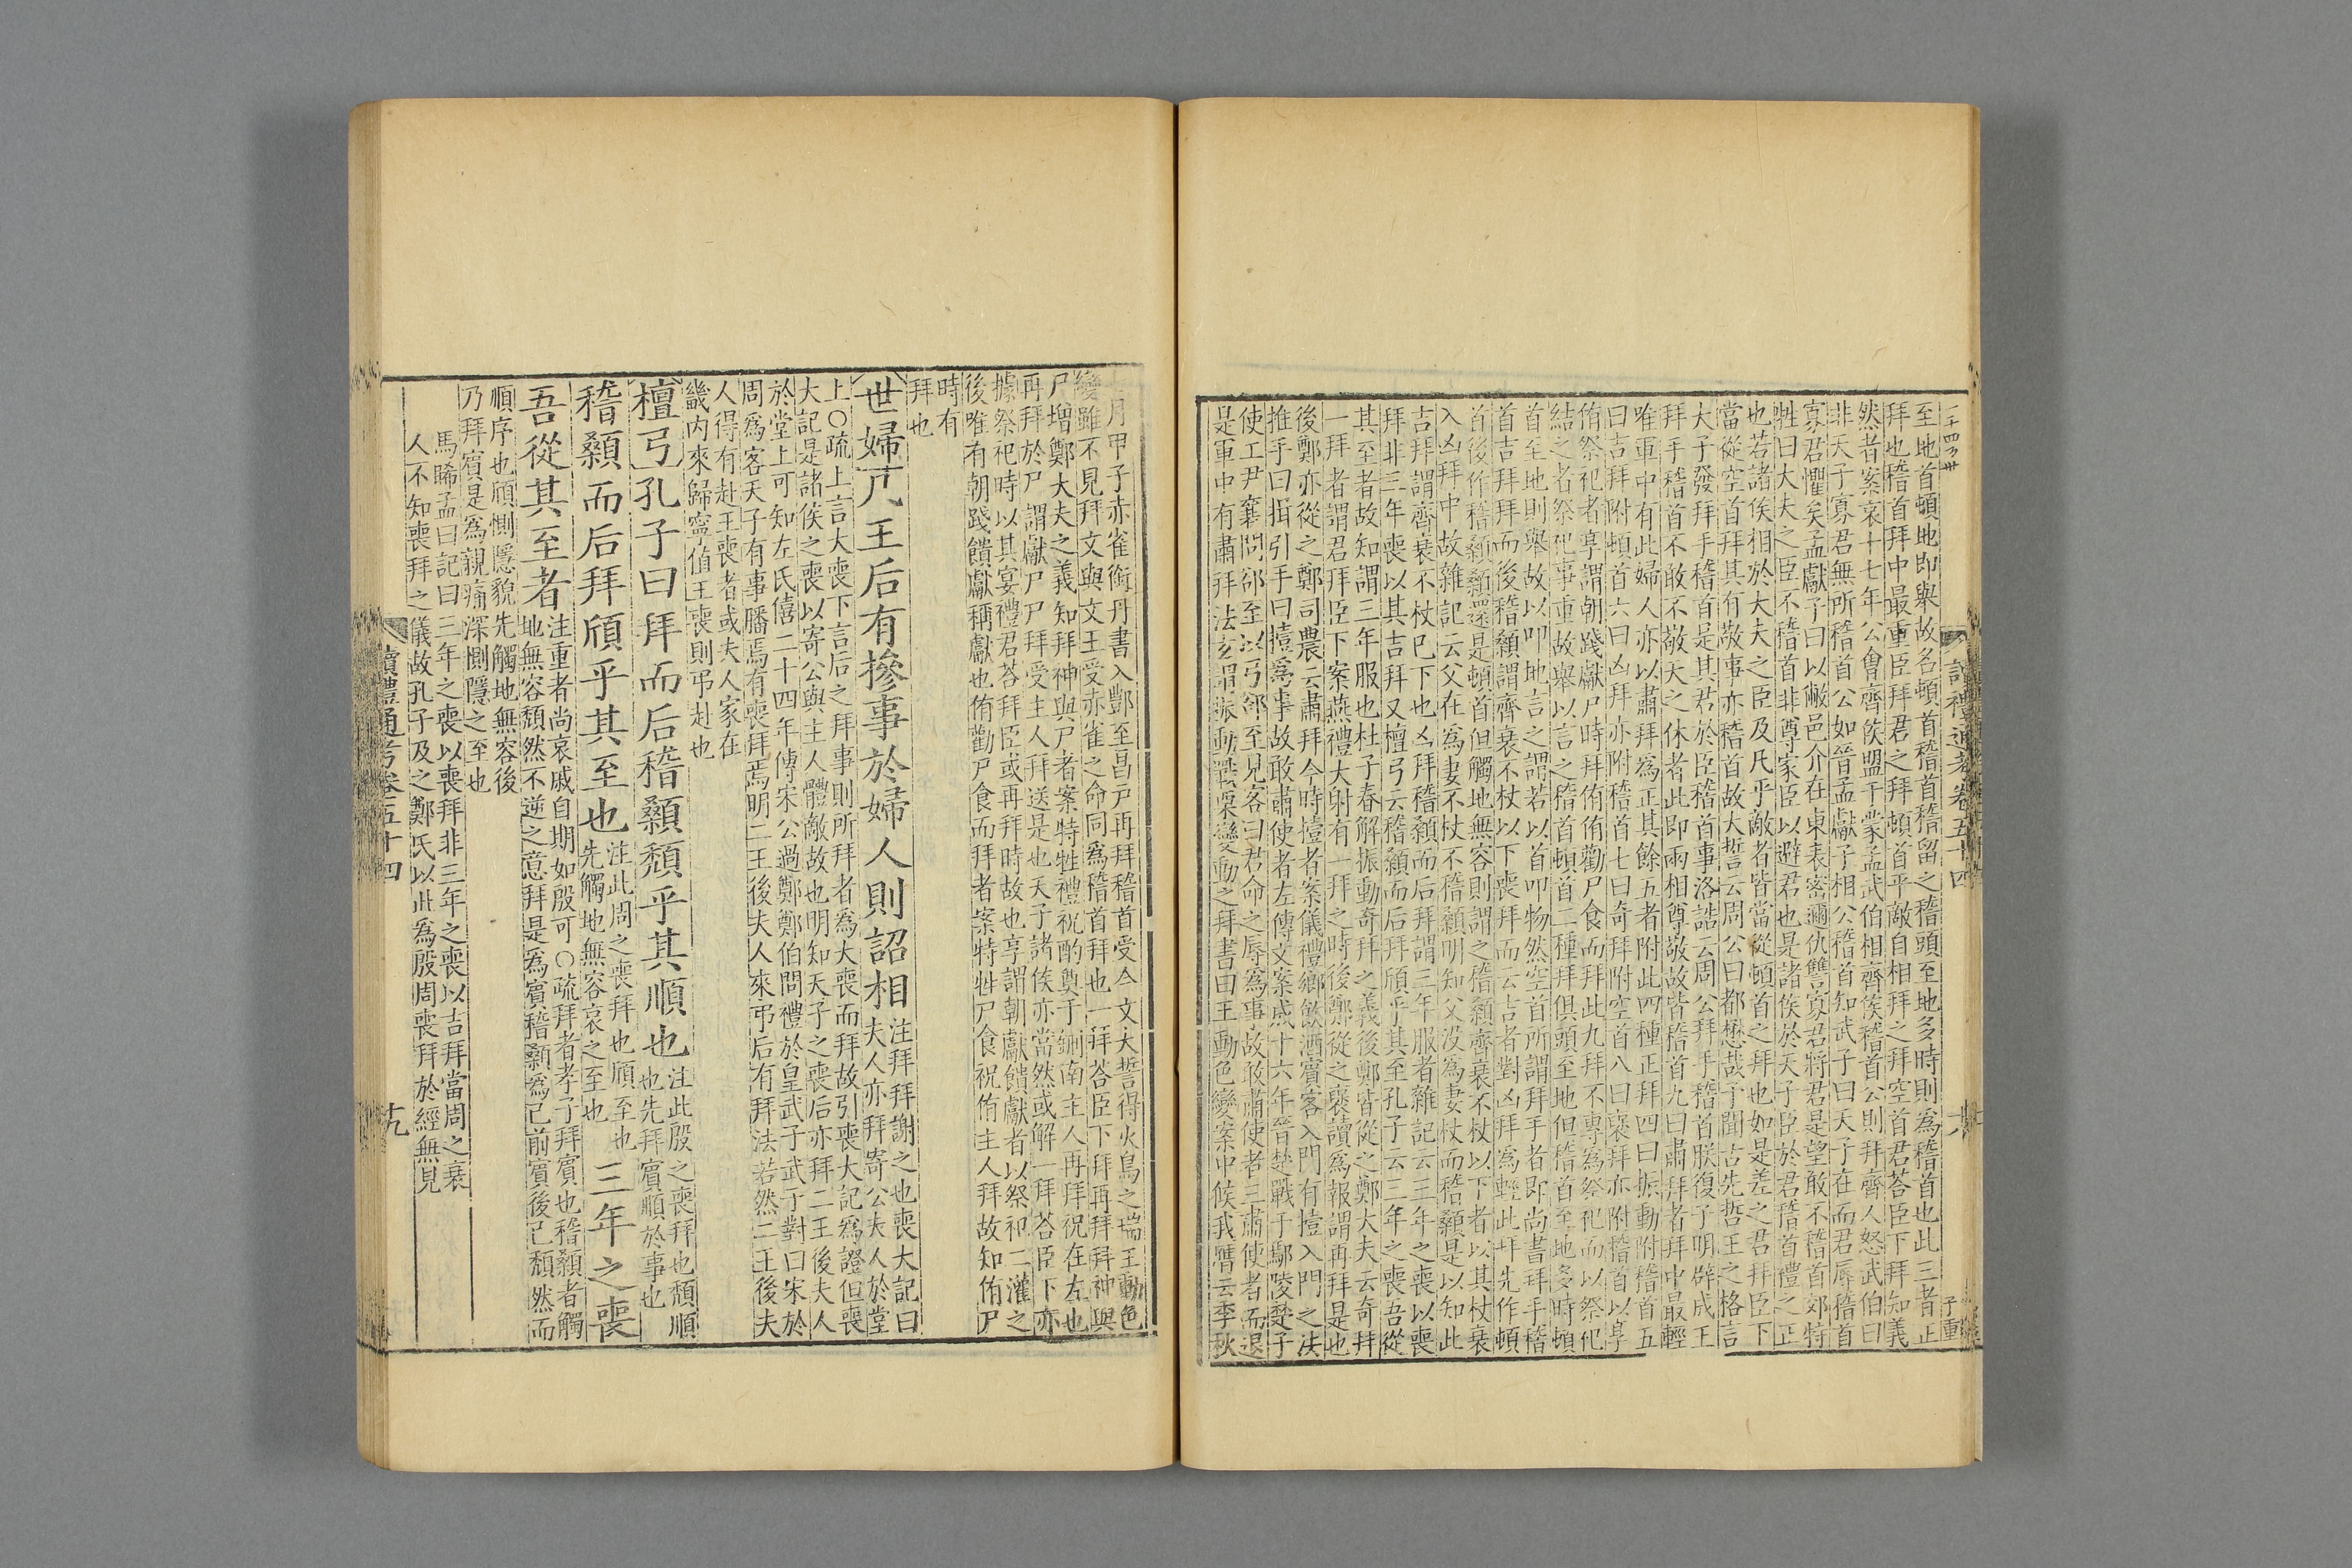 二十四
讀禮通考卷五十四
六
至地首頓地即舉故名頓首稽首稽留之稽頭至地多時則為稽首也此三者正
拜也稽首拜中最重臣拜君之拜頓首平敵自相拜之拜空首君荅臣下拜知義
然者案哀十七年公會齊侯盟于蒙孟武伯相齊侯稽首公則拜齊人怒武伯曰
非天子寡君無所稽首公如晉孟獻子相公稽首知武子曰天子在而君辱稽首
寡君懼矣孟獻子曰以敝邑介在東表密邇仇讐寡君將君是望敢不稽首郊特
牲曰大夫之臣不稽首非尊家臣以避君也是諸侯於天子臣於君稽首禮之正
也若諸侯相於大夫之臣及凡乎敵者皆當從頓首之拜也如是差之君拜臣下
當從空首拜其有敬事亦稽首故大誓云周公曰都懋哉予聞古先哲王之格言
大子發拜手稽首是其君於臣稽首事洛誥云周公拜手稽首朕復子明辟成王
拜手稽首不敢不敬天之休者此即兩相尊敬故皆稽首九曰肅拜者拜中最輕
唯軍中有此婦人亦以肅拜為正其餘五者附此四種正拜四曰振動附稽首五
曰吉拜附頓首六曰凶拜亦附稽首七曰奇拜附空首八曰褒拜亦附稽首以享
侑祭祀者享謂朝踐獻尸時拜侑侑勸尸食而拜此九拜不專為祭祀而以祭祀
結之者祭祀事重故舉以言之稽首頓首二種拜俱頭至地但稽首至地多時頓
首至地則舉故以叩地言之謂若以首叩物然空首所謂拜手者即尚書拜手稽
首吉拜拜而後稽顙謂齊衰不杖以下喪拜而云吉者對凶拜為輕此拜先作頓
首後作稽顙顙還是頓首但觸地無容則謂之稽顙齊衰不杖以下者以其杖衰
入凶拜中故雜記云父在為妻不杖不稽顙明知父没為妻杖而稽顙是以知此
吉拜謂齊衰不杖已下也凶拜稽顙而后拜謂三年服者雜記云三年之喪以喪
拜非三年喪以其吉拜又檀弓云稽顙而后拜頎乎其至孔子云三年之喪吾從
其至者故知謂三年服也杜子春解振動奇拜之義後鄭皆從之鄭大夫云奇拜
一拜者謂君拜臣下案燕禮大射有一拜之時後鄭從之褒讀為報謂再拜是也
後鄭亦從之鄭司農云肅拜今時撎者案儀禮鄉飲酒賓客入門有撎入門之法
推手曰揖引手曰撎為事故敢肅使者左傳文案成十六年晉楚戰于鄢陵楚子
使工尹襄問郤至以弓郤至見客曰君命之辱為事故敢肅使者三肅使者而退
是軍中有肅拜法玄謂振動戰栗變動之拜書曰王動色變案中候我膺云季秋
七月甲子赤雀銜丹書入酆至昌戶再拜稽首受今文大誓得火烏之瑞王動色
變雖不見拜文與文王受赤雀之命同為稽首拜也一拜荅臣下拜再拜拜神與
尸增鄭大夫之義知拜神與尸者案特牲禮祝酌奠于鉶南主人再拜祝在左也
再拜於尸謂獻尸尸拜受主人拜送是也天子諸侯亦當然或解一拜荅臣下亦
據祭祀時以其宴禮君荅拜臣或再拜時故也享謂朝獻饋獻者以祭祀二灌之
後唯有朝踐饋獻稱獻也侑勸尸食而拜者案特牲尸食祝侑主人拜故知侑尸
時有
拜也
世婦凡王后有摻事於婦人則詔相注拜拜謝之也喪大記曰夫人亦拜寄公夫人於堂
上○疏上言大喪下言后之拜事則所拜者為大喪而拜故引喪大記為證但喪
大記是諸侯之喪以寄公與主人體敵故也明知天子之喪后亦拜二王後夫人
於堂上可知左氏僖二十四年傳宋公過鄭鄭伯問禮於皇武子武子對曰宋於
周為客天子有事膰焉有喪拜焉明二王後夫人來弔后有拜法若然二王後夫
人得有赴王喪者或夫人家在
畿内來歸寧值王喪則弔赴也
檀弓孔子曰拜而后稽顙頽乎其順也注此殷之喪拜也頽順也先拜賓順於事也
稽顙而后拜頎乎其至也注此周之喪拜也頎至也先觸地無容哀之至也三年之喪
吾從其至者注重者尚哀戚自期如殷可○疏拜者孝子拜賓也稽顙者觸地無容頽然不逆之意拜是為賓稽顙為己前賓後己頽然而
順序也頎惻隱貌先觸地無容後
乃拜賓是為親痛深惻隱之至也
馬晞孟曰記曰三年之喪以喪拜非三年之喪以吉拜當周之衰
人不知喪拜之儀故孔子及之鄭氏以此為殷周喪拜於經無見
讀禮通考卷五十四
九